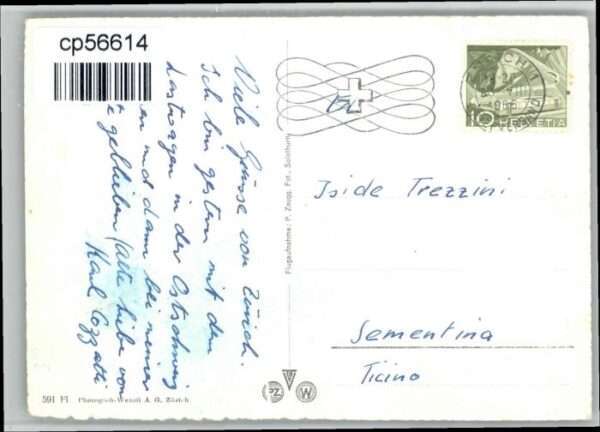 cp56614
Viele Grüsse von Zürich.
Ich bin gestern mit dem
Lastwagen in der Ostschweiz
und dann bei meiner
geblieben (alte Liebe von
Karl Cozzatti
Flugaufnahme: P. Zaugg, Fot., Solothurn
10 HELVETIA
Iside Trezzini
Sementina
Ticino
591 Fl Photogroh-Wendli A. G. Zürich